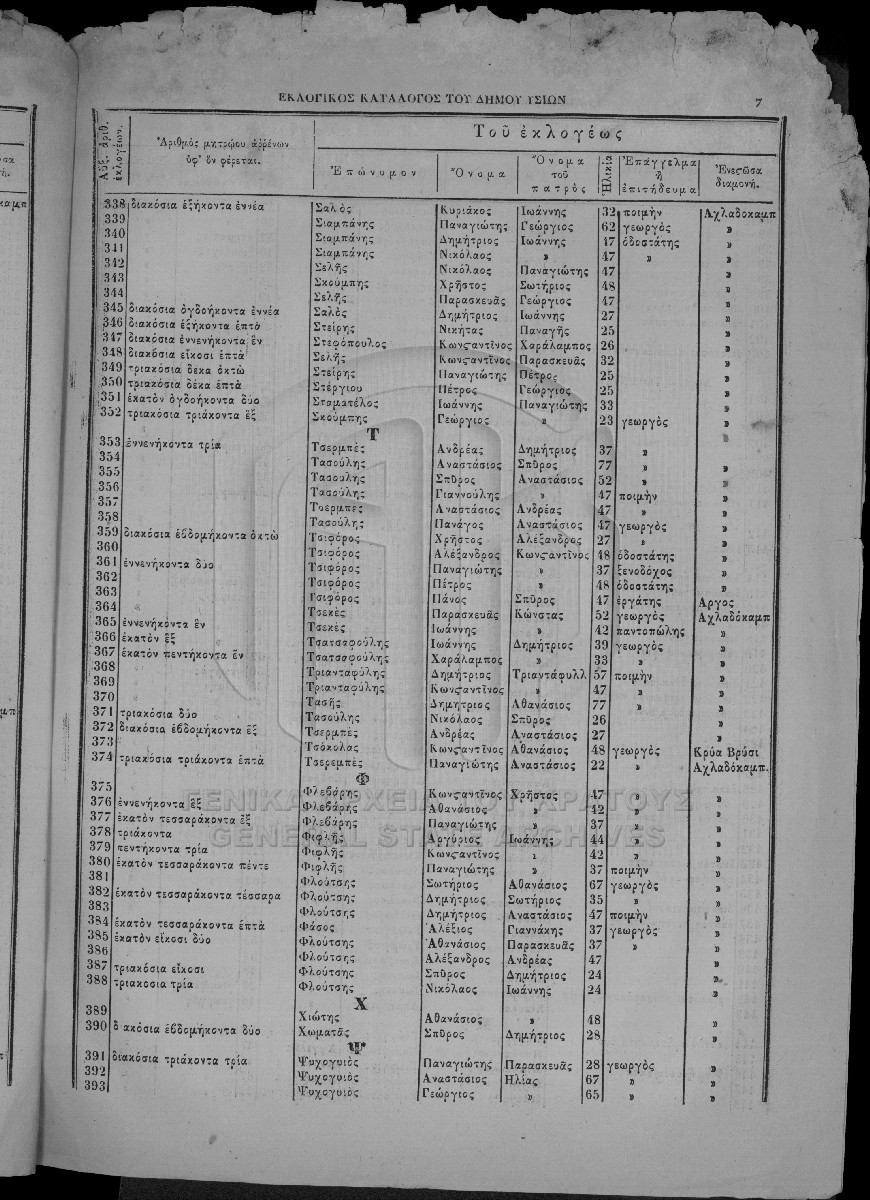 ΕΚΛΟΓΙΚΟΣ ΚΑΤΑΛΟΓΟΣ ΤΟΥ ΔΗΜΟΥ ΥΣΙΩΝ 7
Αὔξ. ἀριθ. ἐκλογέων. Ἀριθμὸς μητρῴου ἀρρένων ὑφ' ὃν φέρεται. Τοῦ ἐκλογέως
Ἐπώνυμον Ὄνομα Ὄνομα τοῦ πατρὸς Ἡλικία Ἐπάγγελμα ἢ ἐπιτήδευμα Ἐνεστῶσα διαμονή.
338 διακόσια ἑξήκοντα ἐννέα Σαλὸς Κυριάκος Ἰωάννης 32 ποιμὴν Ἀχλαδοκαμπ
339 Σιαμπάνης Παναγιώτης Γεώργιος 62 γεωργὸς »
340 Σιαμπάνης Δημήτριος Ἰωάννης 47 ὁδοστάτης »
341 Σιαμπάνης Νικόλαος » 47 » »
342 Σελῆς Νικόλαος Παναγιώτης 47 »
343 Σκούμπης Χρῆστος Σωτήριος 48 »
344 Σελῆς Παρασκευᾶς Γεώργιος 47 »
345 διακόσια ὀγδοήκοντα ἐννέα Σαλὸς Δημήτριος Ἰωάννης 27 »
346 διακόσια ἑξήκοντα ἑπτὰ Στείρης Νικήτας Παναγῆς 25 »
347 διακόσια ἐννενήκοντα ἓν Στεφόπουλος Κωνσταντῖνος Χαράλαμπος 26 »
348 διακόσια εἴκοσι ἑπτὰ Σελῆς Κωνσταντῖνος Παρασκευᾶς 32 »
349 τριακόσια δέκα ὀκτὼ Στείρης Παναγιώτης Πέτρος 25 »
350 τριακόσια δέκα ἑπτὰ Στέργιου Πέτρος Γεώργιος 25 »
351 ἑκατὸν ὀγδοήκοντα δύο Σταματέλος Ἰωάννης Παναγιώτης 33 »
352 τριακόσια τριάκοντα ἓξ Σκούμπης Γεώργιος » 23 γεωργὸς »
Τ
353 ἐννενήκοντα τρία Τσερμπὲς Ἀνδρέας Δημήτριος 37 »
354 Τασούλης Ἀναστάσιος Σπῦρος 77 » »
355 Τασούλης Σπῦρος Ἀναστάσιος 52 » »
356 Τασούλης Γιαννούλης » 47 ποιμὴν »
357 Τσερμπὲς Ἀναστάσιος Ἀνδρέας 47 » »
358 Τασούλης Πανάγος Ἀναστάσιος 47 γεωργὸς »
359 διακόσια ἑβδομήκοντα ὀκτὼ Τσιφόρος Χρῆστος Ἀλέξανδρος 27 » »
360 Τσιφόρος Ἀλέξανδρος Κωνσταντῖνος 48 ὁδοστάτης »
361 ἐννενήκοντα δύο Τσιφόρος Παναγιώτης » 37 ξενοδόχος »
362 Τσιφόρος Πέτρος » 48 ὁδοστάτης »
363 Τσιφόρος Πάνος Σπῦρος 47 ἐργάτης Ἄργος
364 Τσεκὲς Παρασκευᾶς Κώνστας 52 γεωργὸς Ἀχλαδόκαμπ
365 ἐννενήκοντα ἓν Τσεκὲς Ἰωάννης » 42 παντοπώλης »
366 ἑκατὸν ἓξ Τσατσαφούλης Ἰωάννης Δημήτριος 39 γεωργὸς »
367 ἑκατὸν πεντήκοντα ἓν Τσατσαφούλης Χαράλαμπος » 33 » »
368 Τριανταφύλης Δημήτριος Τριαντάφυλλ 57 ποιμὴν »
369 Τριανταφύλης Κωνσταντῖνος » 47 » »
370 Τασῆς Δημήτριος Ἀθανάσιος 77 » »
371 τριακόσια δύο Τασούλης Νικόλαος Σπῦρος 26 »
372 διακόσια ἑβδομήκοντα ἓξ Τσερμπὲς Ἀνδρέας Ἀναστάσιος 27 »
373 Τσόκολας Κωνσταντῖνος Ἀθανάσιος 48 γεωργὸς Κρύα Βρύσι
374 τριακόσια τριάκοντα ἑπτὰ Τσερεμπὲς Παναγιώτης Ἀναστάσιος 22 » Ἀχλαδόκαμπ.
Φ
375 Φλεβάρης Κωνσταντῖνος Χρῆστος 47 » »
376 ἐννενήκοντα ἓξ Φλεβάρης Ἀθανάσιος » 42 » »
377 ἑκατὸν τεσσαράκοντα ἓξ Φλεβάρης Παναγιώτης » 37 » »
378 τριάκοντα Φιφλῆς Ἀργύριος Ἰωάννης 44 » »
379 πεντήκοντα τρία Φιφλῆς Κωνσταντῖνος » 42 » »
380 ἑκατὸν τεσσαράκοντα πέντε Φιφλῆς Παναγιώτης » 37 ποιμὴν »
381 Φλούτσης Σωτήριος Ἀθανάσιος 67 γεωργὸς »
382 ἑκατὸν τεσσαράκοντα τέσσαρα Φλούτσης Δημήτριος Σωτήριος 35 » »
383 Φλούτσης Δημήτριος Ἀναστάσιος 47 ποιμὴν »
384 ἑκατὸν τεσσαράκοντα ἑπτὰ Φάσος Ἀλέξιος Γιαννάκης 37 γεωργὸς »
385 ἑκατὸν εἴκοσι δύο Φλούτσης Ἀθανάσιος Παρασκευᾶς 37 » »
386 Φλούτσης Ἀλέξανδρος Ἀνδρέας 47 »
387 τριακόσια εἴκοσι Φλούτσης Σπῦρος Δημήτριος 24 »
388 τριακόσια τρία Φλούτσης Νικόλαος Ἰωάννης 24 »
Χ
389 Χιώτης Ἀθανάσιος » 48 »
390 δ ακόσια ἑβδομήκοντα δύο Χωματᾶς Σπῦρος Δημήτριος 28 »
Ψ
391 διακόσια τριάκοντα τρία Ψυχογυιὸς Παναγιώτης Παρασκευᾶς 28 γεωργὸς »
392 Ψυχογυιὸς Ἀναστάσιος Ἠλίας 67 » »
393 Ψυχογυιὸς Γεώργιος » 65 » »
ΓΕΝΙΚΑ ΑΡΧΕΙΑ ΤΟΥ ΚΡΑΤΟΥΣ
GENERAL STATE ARCHIVES